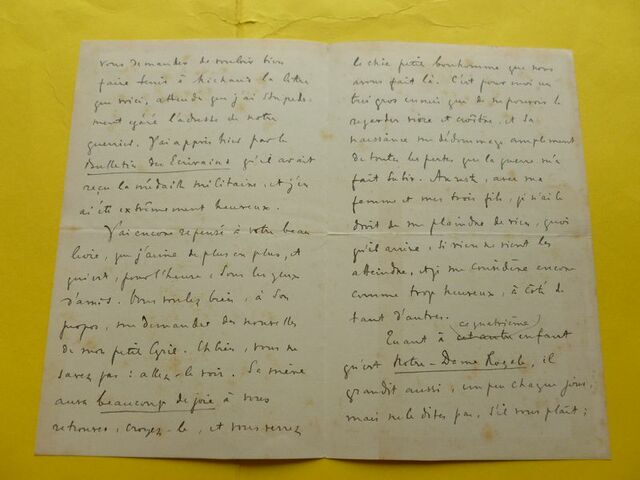 vous demander de vouloir bien
faire tenir à Michaud la lettre
que voici, attendu que j'ai stupide-
ment égaré l'adresse de notre
guerrier. J'ai appris hier par le
Bulletin des Ecrivains qu'il avait
reçu la médaille militaire, et j'en
ai été extrêmement heureux.
J'ai encore repensé à votre beau
livre, que j'aime de plus en plus, et
qui est, pour l'heure, sous les yeux
d'amis. Vous voulez bien, à son
propos, me demander des nouvelles
de mon petit Cyrille. Eh bien, vous ne
savez pas : allez le voir. Sa mère
aura beaucoup de joie à vous
retrouver, croyez-le, et vous verrez
le chic petit bonhomme que nous
avons fait là. C'est pour moi un
très gros ennui que de ne pouvoir le
regarder vivre et croître, et sa
naissance me dédommage amplement
de toutes les pertes que la guerre m'a
fait subir. Au reste, avec ma
femme et mes trois fils, je n'ai le
droit de me plaindre de rien, quoi
qu'il arrive, si rien ne vient les
atteindre, et je me considère encore
comme trop heureux, à côté de
tant d'autres.
Quant à ce quatrième enfant
qu'est Notre-Dame Royale, il
grandit aussi, un peu chaque jour,
mais ne le dites pas, s'il vous plaît ;